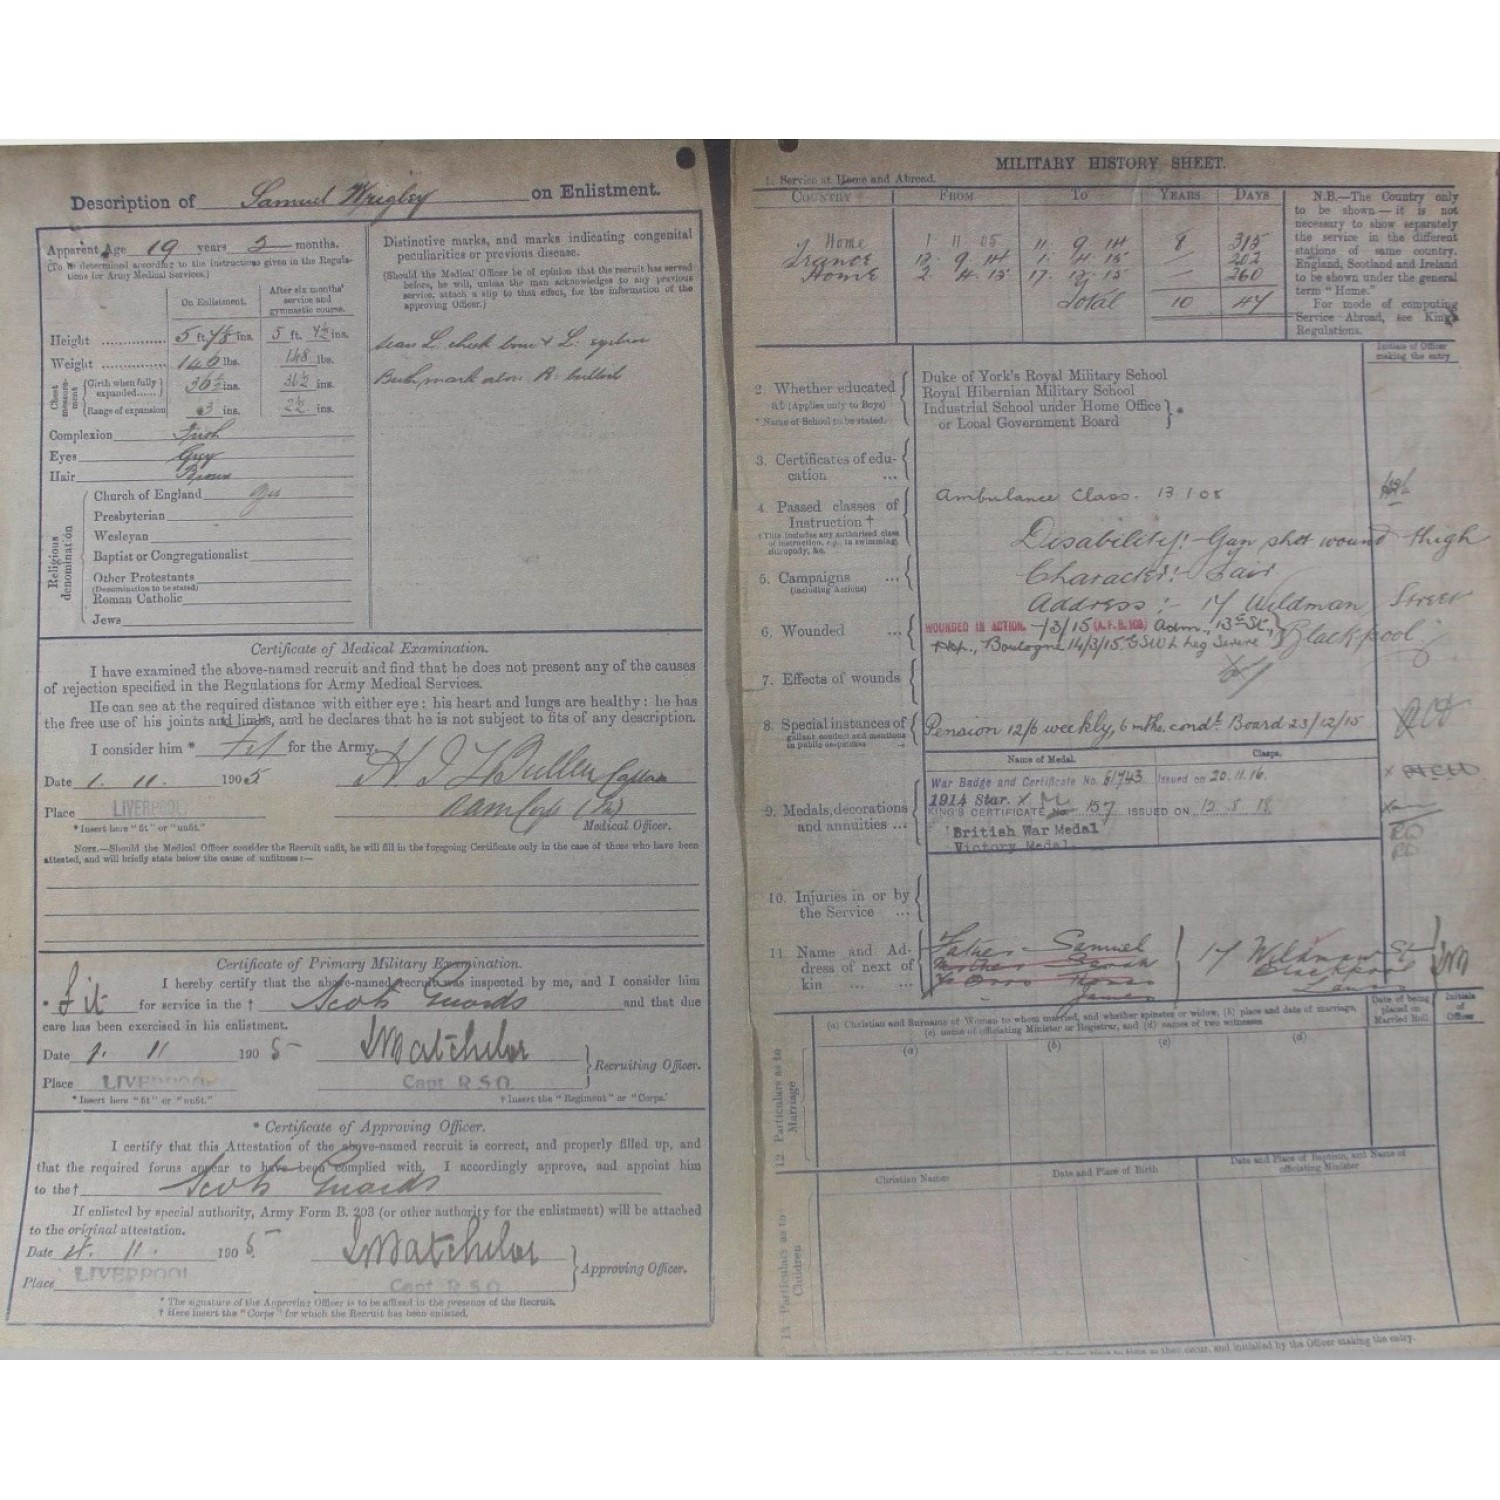 Description of Samuel Wrigley on Enlistment.
Apparent Age 19 years 2 months.
(To be determined according to the instructions given in the Regulations for Army Medical Services.)
On Enlistment.
After six months' service and gymnastic course.
Height 5 ft. ins. 5 ft. 7½ ins.
Weight 146 lbs. 148 lbs.
Chest measurement
Girth when fully expanded 36½ ins. 36½ ins.
Range of expansion 3 ins. 2½ ins.
Complexion Fresh
Eyes Grey
Hair Brown
Religious denomination
Church of England Yes
Presbyterian
Wesleyan
Baptist or Congregationalist
Other Protestants
(Denomination to be stated)
Roman Catholic
Jews
Distinctive marks, and marks indicating congenital
peculiarities or previous disease.
(Should the Medical Officer be of opinion that the recruit has served
before, he will, unless the man acknowledges to any previous
service, attach a slip to that effect, for the information of the
approving Officer.)
Scar L. cheek bone & L.
Birth mark R. buttock
Certificate of Medical Examination.
I have examined the above-named recruit and find that he does not present any of the causes
of rejection specified in the Regulations for Army Medical Services.
He can see at the required distance with either eye; his heart and lungs are healthy; he has
the free use of his joints and limbs, and he declares that he is not subject to fits of any description.
I consider him * fit for the Army.
Date 1. 11. 1905
Place LIVERPOOL
Medical Officer.
* Insert here "fit" or "unfit."
NOTE.—Should the Medical Officer consider the Recruit unfit, he will fill in the foregoing Certificate only in the case of those who have been
attested, and will briefly state below the cause of unfitness:—
Certificate of Primary Military Examination.
I hereby certify that the above-named recruit was inspected by me, and I consider him
* Fit for service in the † Scots Guards and that due
care has been exercised in his enlistment.
Date 1. 11 1905 Recruiting Officer.
Place LIVERPOOL Capt R.S.O
* Insert here "fit" or "unfit." † Insert the "Regiment" or "Corps."
* Certificate of Approving Officer.
I certify that this Attestation of the above-named recruit is correct, and properly filled up, and
that the required forms appear to have been complied with. I accordingly approve, and appoint him
to the † Scots Guards
If enlisted by special authority, Army Form B. 203 (or other authority for the enlistment) will be attached
to the original attestation.
Date 11. 1905.
Place LIVERPOOL Capt R.S.O Approving Officer.
* The signature of the Approving Officer is to be affixed in the presence of the Recruit.
† Here insert the "Corps" for which the Recruit has been enlisted.
MILITARY HISTORY SHEET.
1. Service at Home and Abroad.
COUNTRY FROM TO YEARS DAYS
Home 1 11 05 11. 9. 14 8 315
France 12. 9. 14 1. 4. 15 — 202
Home 2 4. 15 17. 12. 15 — 260
Total 10 47
N.B.—The Country only
to be shown—it is not
necessary to show separately
the service in the different
stations of same country.
England, Scotland and Ireland
to be shown under the general
term "Home."
For mode of computing
Service Abroad, see King's
Regulations.
Initials of Officer
making the entry
2. Whether educated
at (Applies only to Boys)
* Name of School to be stated.
Duke of York's Royal Military School
Royal Hibernian Military School
Industrial School under Home Office
or Local Government Board *
3. Certificates of education ...
4. Passed classes of
Instruction †
† This includes any authorised class
of instruction, e.g., in swimming,
chiropody, &c.
Ambulance Class. 13 1 08
Disability:- Gun shot wound thigh
5. Campaigns ...
(including Actions)
Character:- Fair
Address:- 17 Wildman Street
Blackpool
6. Wounded ...
WOUNDED IN ACTION. -/3/15 (A.F.B. 103) Adm., 13th St.,
Hosp., Boulogne 14/3/15 GSW L Leg Severe
7. Effects of wounds
8. Special instances of
gallant conduct and mentions
in public despatches ...
Pension 12/6 weekly, 6 mths. condl. Board 23/12/15
Name of Medal. Clasp.
9. Medals, decorations
and annuities ...
War Badge and Certificate No. 61743 Issued on 20.11.16.
1914 Star.
KING'S CERTIFICATE No 157 ISSUED ON 12 8 18
British War Medal
Victory Medal
10. Injuries in or by
the Service ...
11. Name and Address of next of
kin ...
Father Samuel
Mother Sarah
James
17 Wildman St
Blackpool
Lancs
12. Particulars as to
Marriage
(a) Christian and Surname of Woman to whom married, and whether spinster or widow, (b) place and date of marriage,
(c) name of officiating Minister or Registrar, and (d) names of two witnesses
Date of being
placed on
Married Roll.
Initials
of
Officer
(a) (b) (c) (d)
13. Particulars as to
Children
Christian Names
Date and Place of Birth
Date and Place of Baptism, and Name of
officiating Minister
as they occur, and initialled by the Officer making the entry.